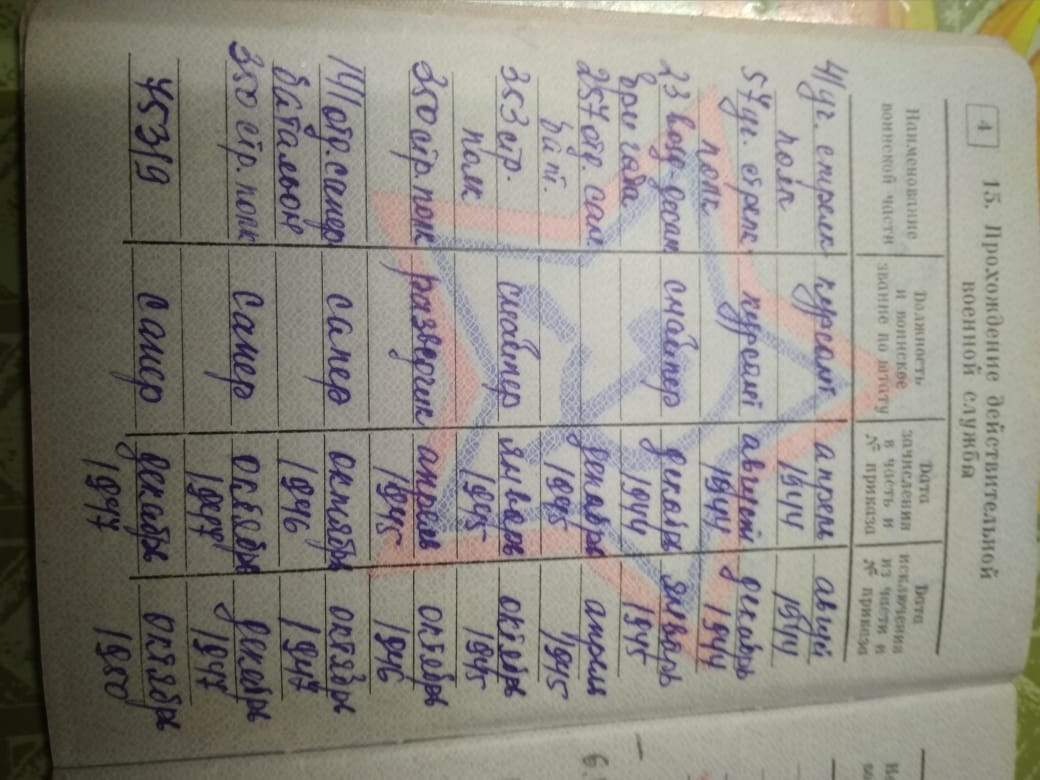 4
15. Прохождение действительной
военной службы
Наименование
воинской части
Должность
и воинское
звание по штату
Дата
зачисления
в часть и
№ приказа
Дата
исключения
из части и
№ приказа
41 уч. стрелк. курсант апрель август
полк 1944 1944
57 уч. стрелк. курсант август декабрь
полк 1944 1944
23 возд. десан снайпер декабрь январь
бригада 1944 1945
257 отд. сап декабрь апрель
бат. 1945 1945
353 стр. снайпер январь октябрь
полк 1945 1945
350 стр. полк разведчик апрель октябрь
1945 1946
141 отд. сапер сапер октябрь октябрь
батальон 1946 1947
350 стр. полк сапер октябрь декабрь
1947 1947
45319 сапер декабрь октябрь
1947 1950